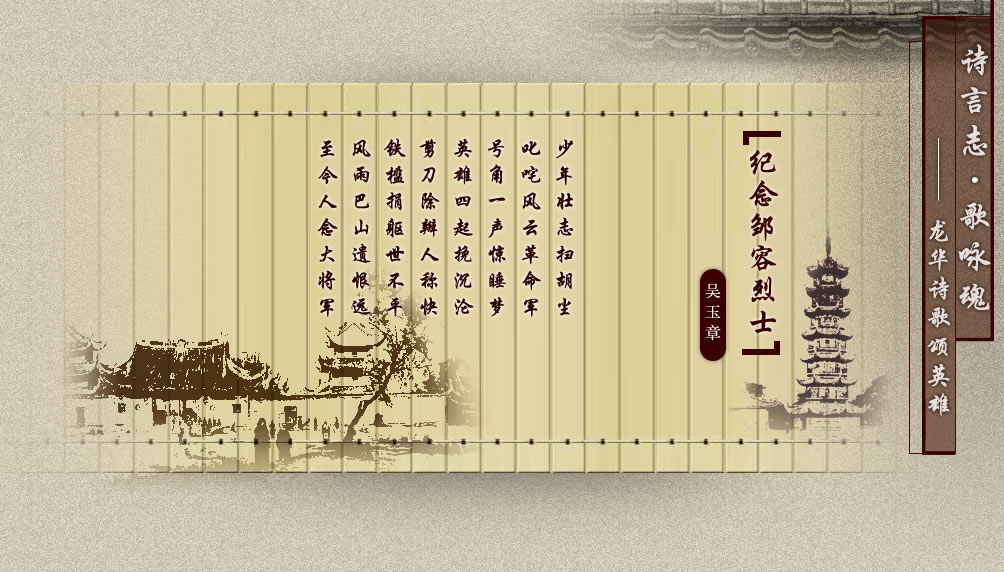 诗言志·歌咏魂
——龙华诗歌颂英雄
纪念邹容烈士
吴玉章
少年壮志扫胡尘
叱咤风云革命军
号角一声惊睡梦
英雄四起挽沉沦
剪刀除辫人称快
铁槛捐躯世不平
风雨巴山遗恨远
至今人念大将军